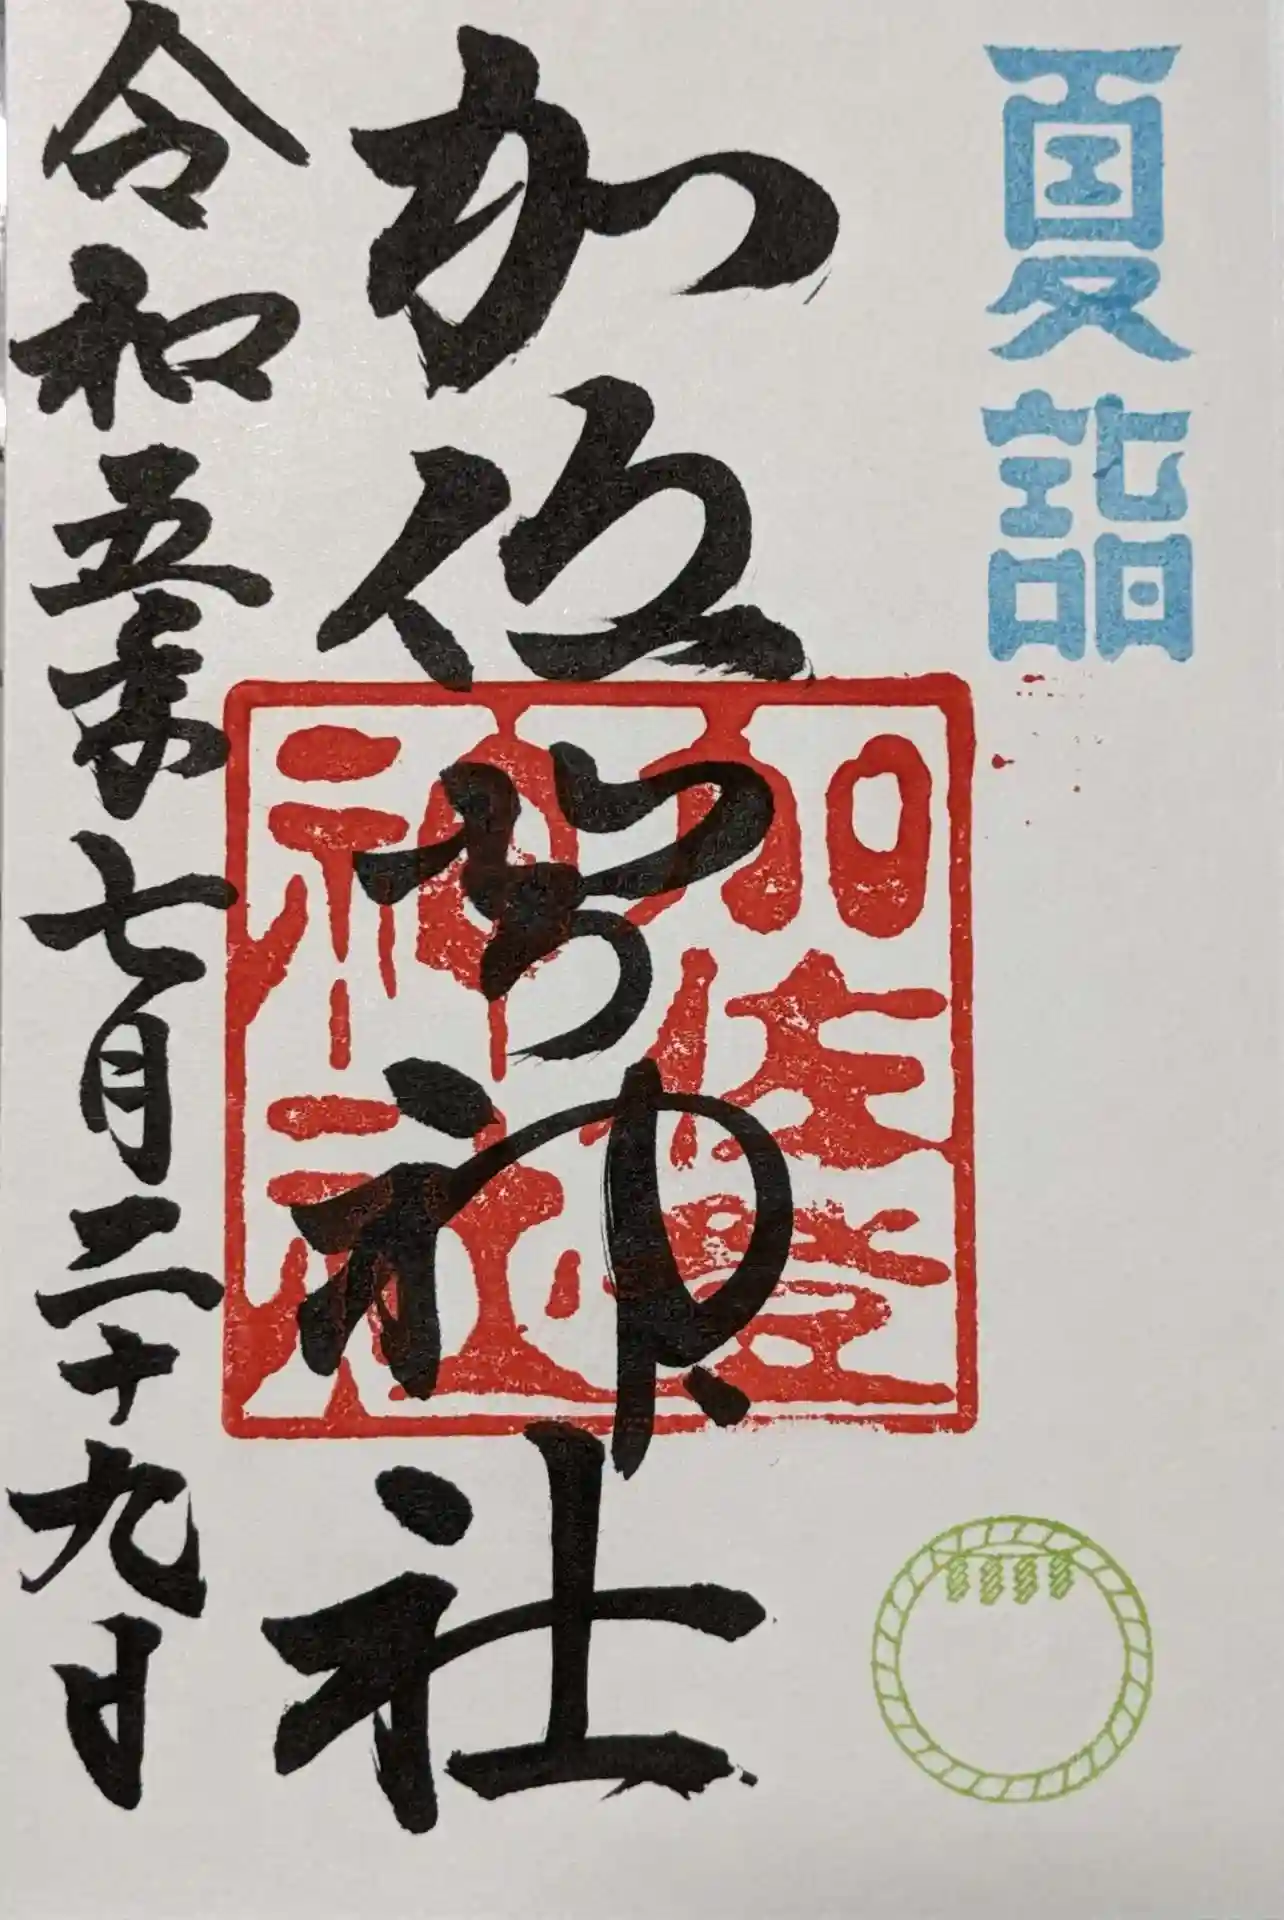 夏詣
加佐登神社
加佐登
神社
令和五年七月二十九日